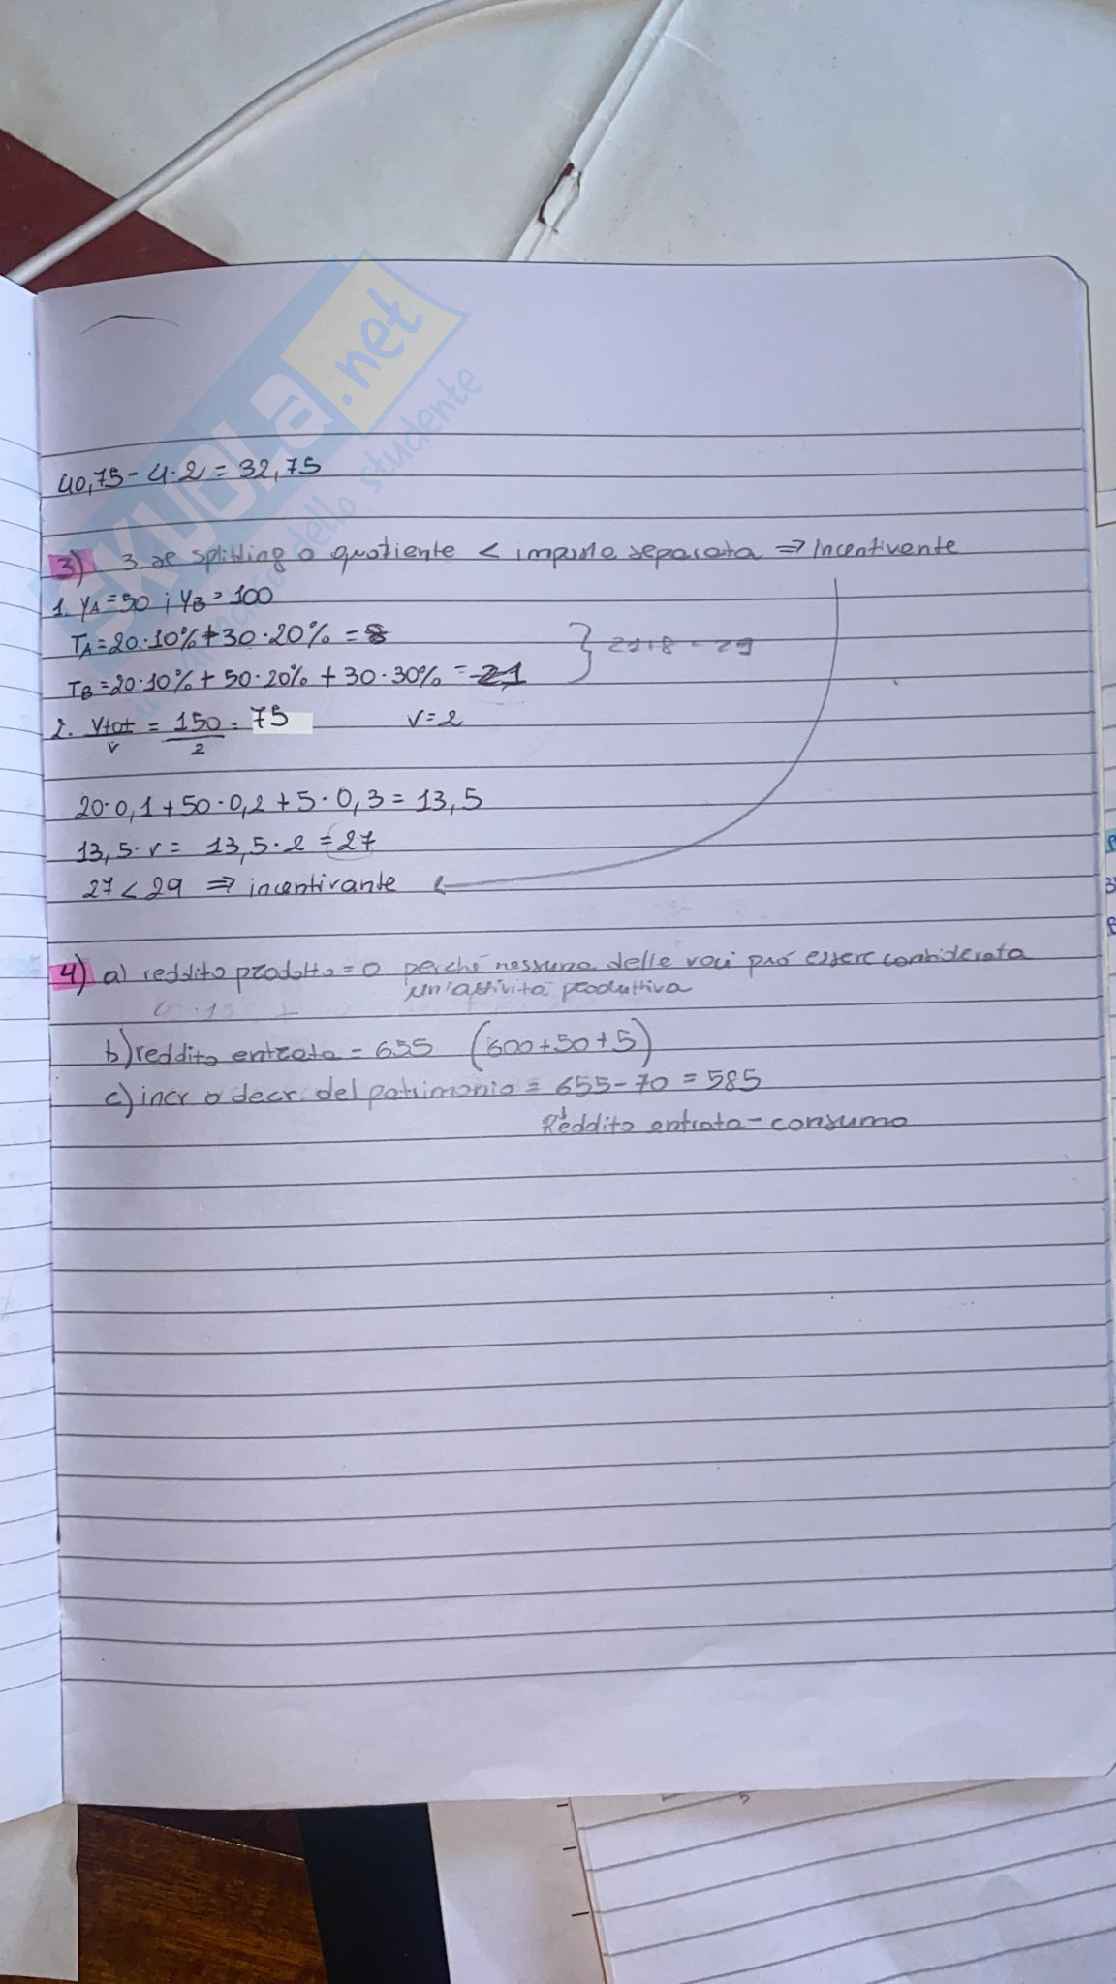 SKUOLA.net
il paradiso dello studente
40,75 - 4·2 = 32,75
3) 3 se splitting o quoziente < imposta separata => Incentivante
1. YA = 50 ; YB = 100
TA = 20·10% + 30·20% = 8
TB = 20·10% + 50·20% + 30·30% = 21
} 21+8 = 29
2. Ytot/r = 150/2 = 75 r = 2
20·0,1 + 50·0,2 + 5·0,3 = 13,5
13,5·r = 13,5·2 = 27
27 < 29 => incentivante
4) a) reddito prodotto = 0 perché nessuna delle voci può essere considerata
un'attività produttiva
b) reddito entrata = 655 (600+50+5)
c) incr o decr. del patrimonio = 655 - 70 = 585
Reddito entrata - consumo